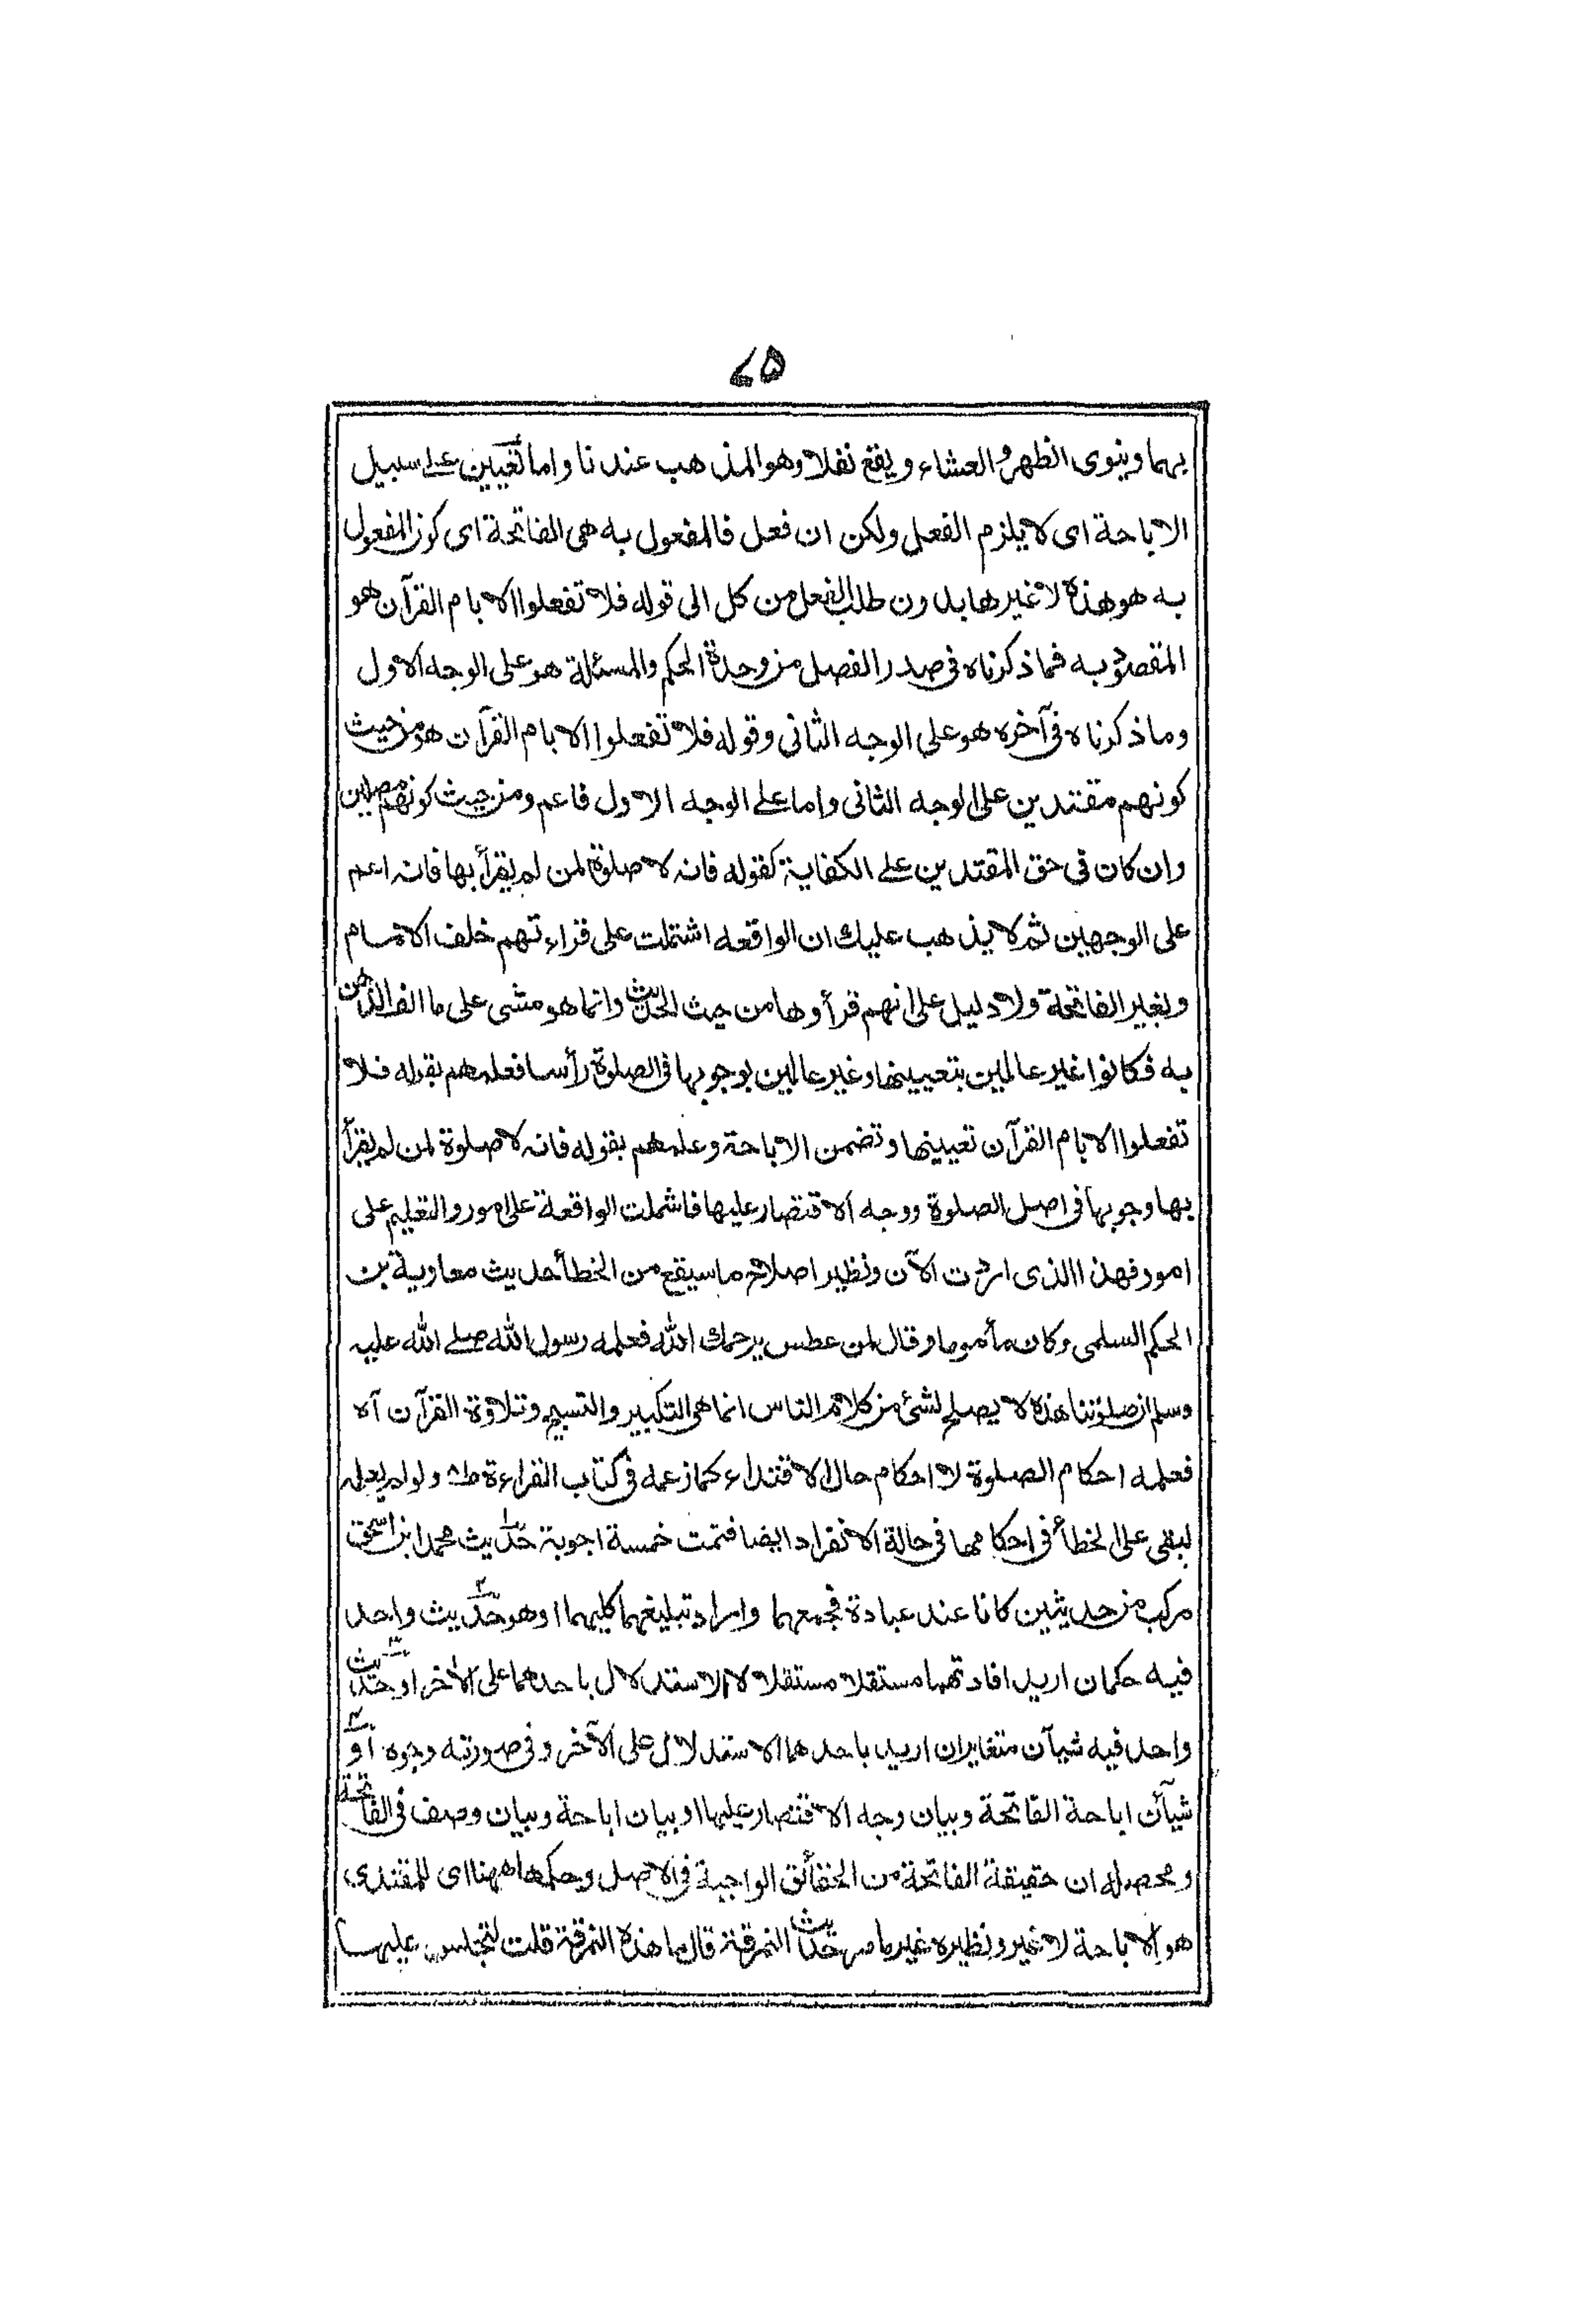 ۷۵
بهما وينوى الظهر والعشاء ويقع نفلا وهو المذهب عندنا واما تعيين على سبيل
الاباحة اى لا يلزم الفعل ولكن ان فعل فالمفعول به هى الفاتحة اى كون المفعول
به هو هذه لا غيرها بدون طلب الفعل من كل الى قوله فلا تفعلوا الا بام القرآن هو
المقصود به فما ذكرناه فى صدر الفصل من وحدة الحكم والمسئلة هو على الوجه الاول
وما ذكرناه فى آخره هو على الوجه الثانى وقوله فلا تفعلوا الا بام القرآن هو من حيث
كونهم مقتدين على الوجه الثانى واما على الوجه الاول فاعم ومن حيث كونهم مصلين
وان كان فى حق المقتدين على الكفاية كقوله فانه لا صلوة لمن لم يقرأ بها فانه اعم
على الوجهين ثم لا يذهب عليك ان الواقعه اشتملت على قراءتهم خلف الامام
وبغير الفاتحة ولا دليل على انهم قرأوها من حيث الحديث وانما هو مشى على ما الف الذهن
به فكانوا غير عالمين بتعيينها وغير عالمين بوجوبها فى الصلوة رأسا فعلمهم بقوله فلا
تفعلوا الا بام القرآن تعيينها وتضمن الاباحة وعلمهم بقوله فانه لا صلوة لمن لم يقرأ
بها وجوبها فى اصل الصلوة ووجه الاقتصار عليها فاشملت الواقعة على امور والتعليم على
امور فهذا الذى اردت الآن ونظير اصلاح ما سيقع من الخطأ حديث معاوية بن
الحكم السلمى وكان مأموما وقال لمن عطس يرحمك الله فعلمه رسول الله صلى الله عليه
وسلم ان صلوتنا هذه لا يصلح لشئ من كلام الناس انما هى التكبير والتسبيح وتلاوة القرآن آه
فعلمه احكام الصلوة لا احكام حال الاقتداء كما زعمه فى كتاب القراءة ولو لم يعلمه
لبقى على الخطأ فى احكامها فى حالة الانفراد ايضا فتمت خمسة اجوبة حديث محمد ابن اسحق
مركب من حديثين كانا عند عبادة فجمعهما واراد تبليغهما كليهما او هو حديث واحد
فيه حكمان اريد افادتهما مستقلا مستقلا لا الاستدلال باحدهما على الآخر او حديث
واحد فيه شيآن متغايران اريد باحدهما الاستدلال على الآخر وفى صورته وجوه او
شيآن اباحة الفاتحة وبيان وجه الاقتصار عليها او بيان اباحة وبيان وصف فى الفاتحة
ومحصوله ان حقيقة الفاتحة من الحقائق الواجبة فى الاصل وحكمها ههنا اى للمقتدى
هو الاباحة لا غير ونظيره غير ما مر حديث النمرقة قال ما هذه النمرقة قلت لتجلس عليها